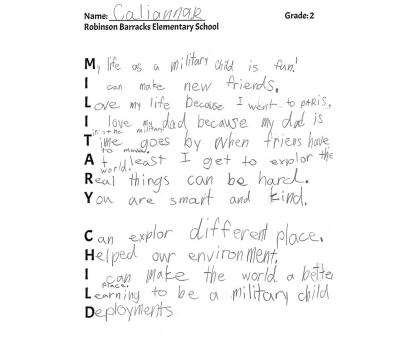 Name: Caliannah Grade: 2
Robinson Barracks Elementary School
My life as a military child is fun!
I can make new friends.
Love my life because I went to pARIS.
I love my dad because my dad is
in the military.
Time goes by when friens have
to move.
At least I get to explor the
world.
Real things can be hard.
You are smart and kind.
Can explor different place.
Helped our environment.
I can make the world a better
place.
Learning to be a military child
Deployments